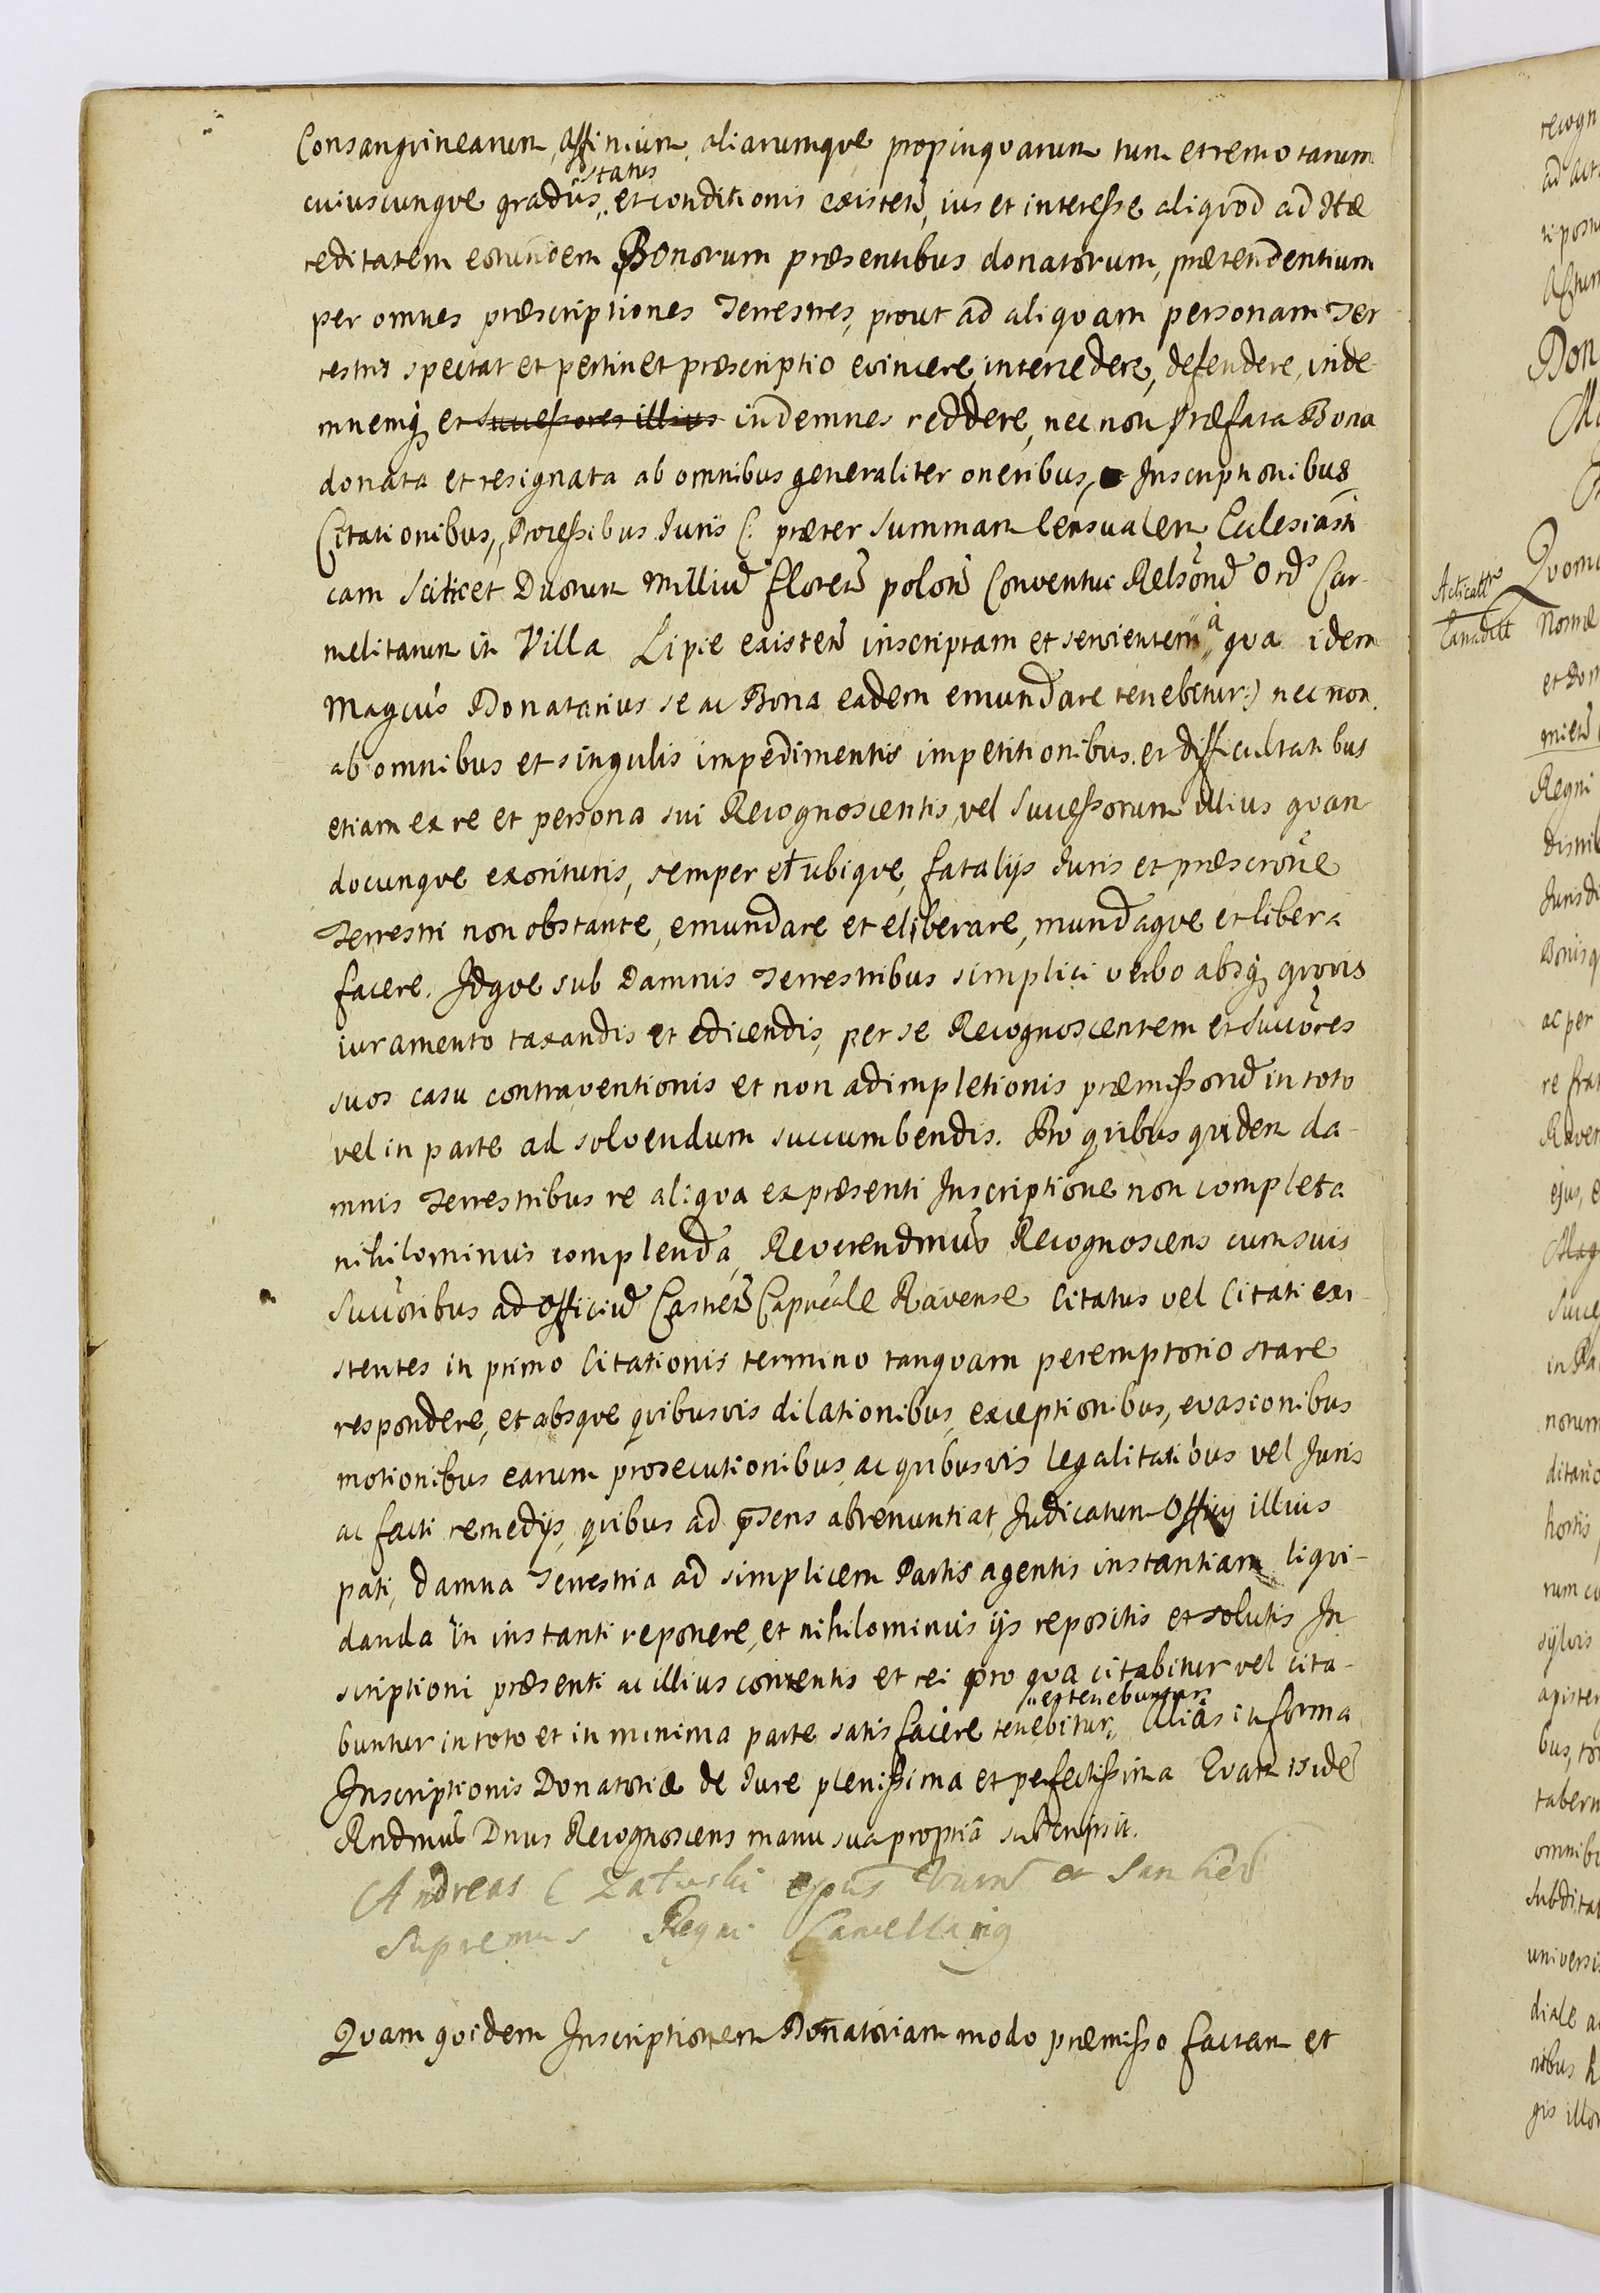 Consangvinearum, Affinium, aliarumqve propinqvarum tum et remotarum
status
cuiuscunqve gradus, et conditionis existen, ius et interesse aliqvod ad Hæ
reditatem eorundem Bonorum præsentibus donatorum, prætendentium
per omnes præscriptiones Terrestres, prout ad aliqvam personam Ter
restris spectat et pertinet præscriptio evincere, intercedere, defendere, inde-
mnemq et successores illius indemnes reddere, nec non præfata Bona
donata et resignata ab omnibus generaliter oneribus, Inscriptionibus
Citationibus, Processibus Juris (: præter summam Censualem Eclesiasti
cam scilicet Duorum Milliu floren polon Conventui Relsond Ords Car-
melitarum in Villa Lipie existen inscriptam et servientem, à qva idem
Magcus Donatarius se ac Bona eadem emundare tenebitur:) nec non
ab omnibus et singulis impedimentis impetitionibus et difficultatibus
etiam ex re et persona sui Recognoscentis, vel Successorum illius qvan
docunqve exorituris, semper et ubiqve, fatalijs Juris et præscrone
Terrestri non obstante, emundare et eliberare, mundaqve et libera
facere. Idqve sub Damnis Terrestribus simplici verbo absq qvovis
iuramento taxandis et edicendis, per se Recognoscentem et Succores
suos casu contraventionis et non adimpletionis præmissord in toto
vel in parte ad solvendum succumbendis. Pro qvibus qvidem da-
mnis Terrestribus re aliqva ex præsenti Inscriptione non completa
nihilominus complenda, Reverendmus Recognoscens cum suis
Succoribus ad Officiu Castren Capneale Ravense Citatus vel Citati exi-
stentes in primo Citationis termino tanqvam peremptorio stare
respondere, et absqve qvibusvis dilationibus, exceptionibus, evasionibus
motionibus earum prosecutionibus, ac qvibusvis legalitatibus vel Juris
ac facti remedijs, qvibus ad præsens abrenuntiat Judicatum Officij illius
pati, damna Terrestria ad simplicem Partis agentis instantiam liqvi-
danda in instanti reponere, et nihilominus ijs repositis et solutis In
scriptioni præsenti ac illius contentis et rei pro qva citabitur vel cita-
et tenebuntur
buntur in toto et in minima parte satis facere tenebitur, Alias in forma
Inscriptionis Donatoriæ de Jure plenissima et perfectissima Evam Ide
Rndmus Dnus Recognoscens manu sua propria subscripsit.
Andreas C Załuski
Supremus Regni Cancellarius
Qvam qvidem Inscriptionem Donatoriam modo præmisso factam et
recogn
ad act
Don
Acticatt
Qvoni
et Dom
Regni
Jurisdi
Bonisq
ac per
re frat
Raven
ejus, e
Mag
Succe
in Ra
ditario
hortis
rum cu
sylvis
tabern
omnib
subdita
universi
gis illo